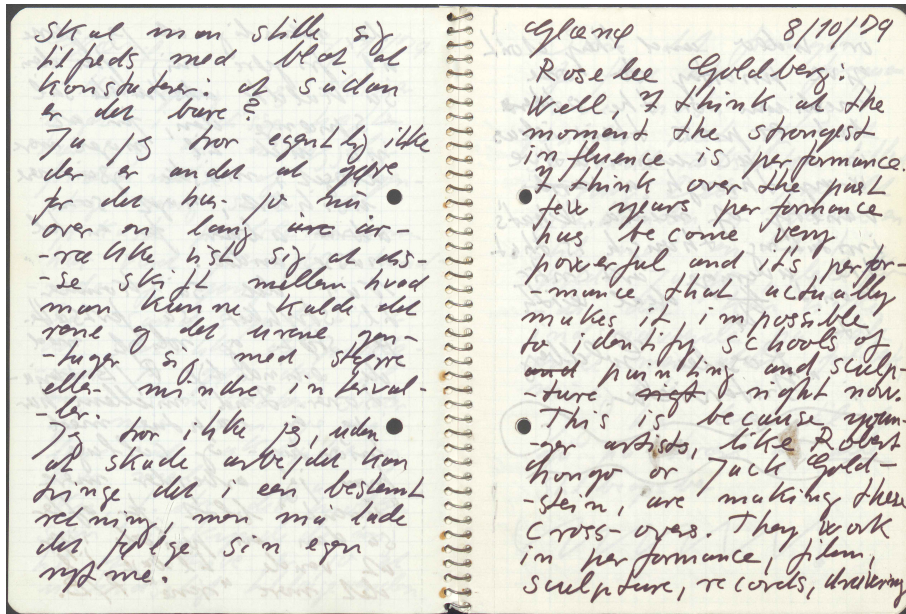 skal man stille sig
tilfreds med blot at
konstatere: at sådan
er det bare?
Ja jeg tror egentlig ikke
der er andet at gøre
for det har jo nu
over en lang år-
-række vist sig at dis-
-se skift mellem hvad
man kunne kalde det
rene og det urene gen-
-tager sig med større
eller mindre interval-
-ler.
Jeg tror ikke jeg, uden
at skade arbejdet kan
tvinge det i een bestemt
retning, man må lade
det følge sin egen
rytme.
8/10/79
Roselee Goldberg:
Well, I think at the
moment the strongest
influence is performance.
I think over the past
few years performance
has become very
powerful and it's perfor-
-mance that actually
makes it impossible
to identify schools of
and painting and sculp-
-ture right now.
This is because youn-
-ger artists, like Robert
Longo or Jack Gold-
-stein, are making these
cross-overs. They work
in performance, film,
sculpture, records, drawing